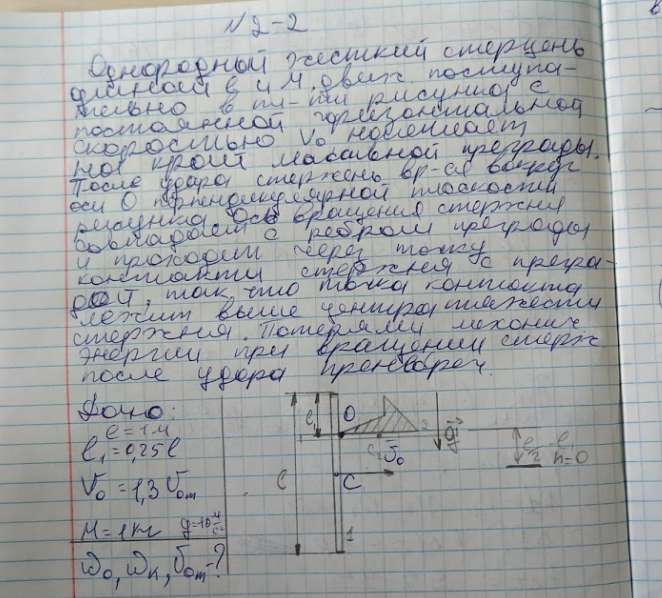 N2-2
Однородный жесткий стержень
длиной l и М, движ. поступа-
тельно в пл-ти рисунка с
постоянной горизонтальной
скоростью V₀ налетает
на край массивной преграды.
После удара стержень вр-ся вокруг
оси О перпендикулярной плоскости
рисунка. Ось вращения стержня
совпадает с ребром преграды
и проходит через точку
контакта стержня с прегра-
дой, так что точка контакта
лежит выше центра тяжести
стержня. Потерями механич
энергии при вращении стерж
после удара пренебреч.
Дано:
l = 1м
l₁ = 0,25l
V₀ = 1,3 Vот
М = 1кг g=10 м/с²
ω₀, ωк, Vот - ?
l₁ O
l C V₀ g
l/2 h=0
1